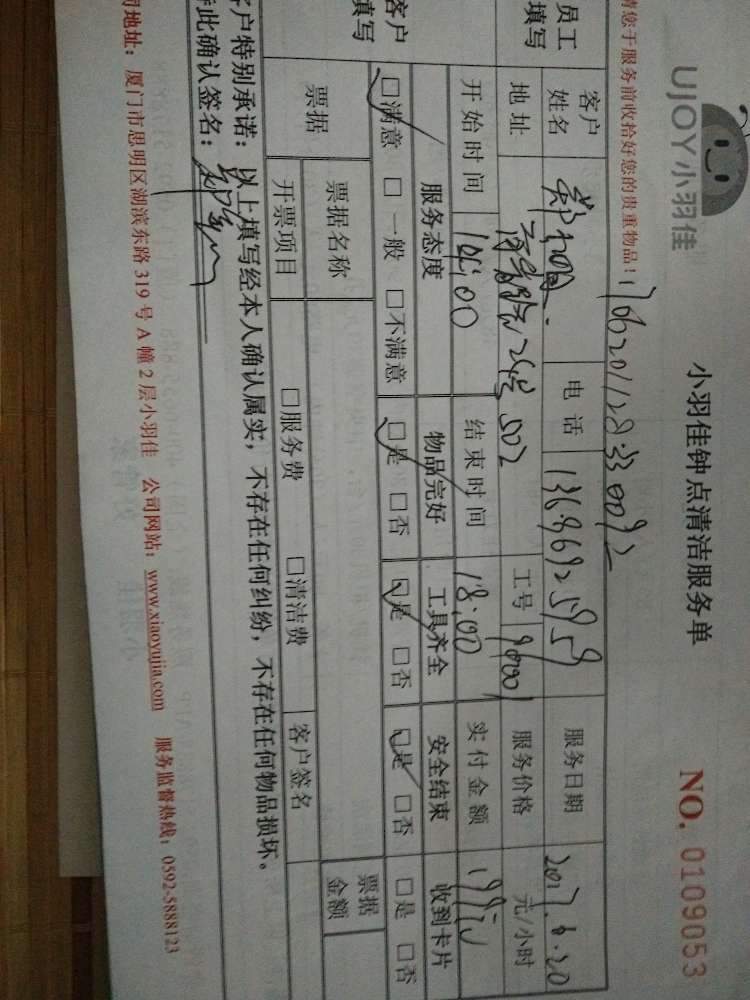 UJOY小羽佳
小羽佳钟点清洁服务单
NO. 0109053
请您于服务前收拾好您的贵重物品！
员工填写
客户姓名 电话 服务日期 2017.6.20
地址 502 工号 90001 服务价格 元/小时
开始时间 14:00 结束时间 18:00 实付金额
客户填写
服务态度 物品完好 工具齐全 安全结束 收到卡片
☑满意 □一般 □不满意 ☑是 □否 ☑是 □否 ☑是 □否 □是 □否
票据 票据名称 票据金额
开票项目 □服务费 □清洁费 客户签名
客户特别承诺：以上填写经本人确认属实，不存在任何纠纷，不存在任何物品损坏。
特此确认签名：
司地址：厦门市思明区湖滨东路 319 号 A 幢 2 层小羽佳 公司网站：www.xiaoyujia.com 服务监督热线：0592-5888123